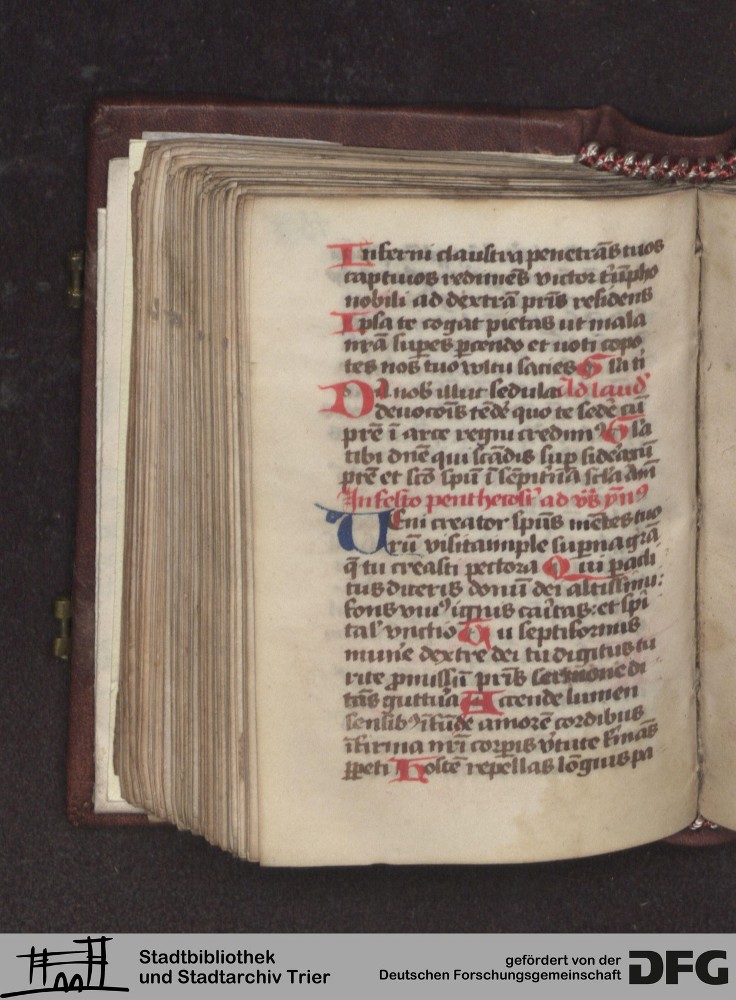 Inferni claustra penetrãs tuos
captiuos redimẽs victor tͥũpho
nobili ad dextrã pr̃is residens
Ipsa te cogat pietas ut mala
nr̃a supẽs ꝑcendo et uoti copo
tes nos tuo vultu sacies Gͣlia ti
Da nob̃ illuc sedula Ad laud̾
deuocõis tẽdẽ quo te sedẽ cũ
prẽ ĩ arce regni credimꝰ Gla
tibi dñe qui scãdis sup̃ sideraͥ cũ
prẽ et sc̃o spũ ĩ sẽpitͥna sc̃la am̃
In festo pentħecosť ad vẽs ym̃nꝰ
UEni creator spũs mẽtes tuo
rũ visita imple sup̃na gr̃a
q̃ tu creasti pectora Qui pacli
tus diceris donũ dei altissimi:
fons viuꝰ ignis caͥtas: et spi
tal̾ vnctio Tu septiformis
mun̾e dextre dei tu digitus tu
rite ꝓmissũ pr̃is sermone di
tãs guttura Accende lumen
sensibꝰ ĩfũde amorẽ cordibus
ĩfirma nr̃i corꝑis v̾tute firmãs
ꝑpeti Hostẽ repellas lõgius pa
Stadtbibliothek
und Stadtarchiv Trier
gefördert von der
Deutschen Forschungsgemeinschaft
DFG